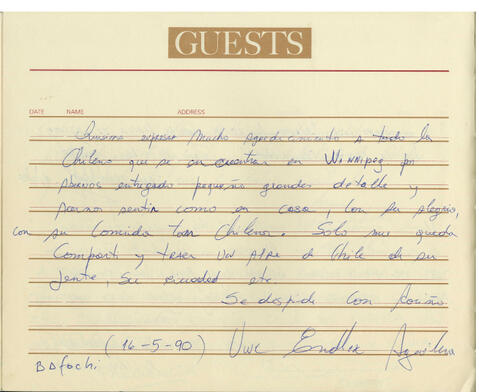 GUESTS
DATE NAME ADDRESS
Quisiera expresar Mucho agradecimiento a todo la
Chileno que se encuentran en Winnipeg por
entregado pequeño grandes detalle y
sentir como en casa, con su alegria,
con su Comida tan Chilena. Solo me queda
Comparti y traer un aire de Chile de su
Jente, su ciudad etc.
Se despide con Cariño
(16-5-90) Uwe Endler Aguilera